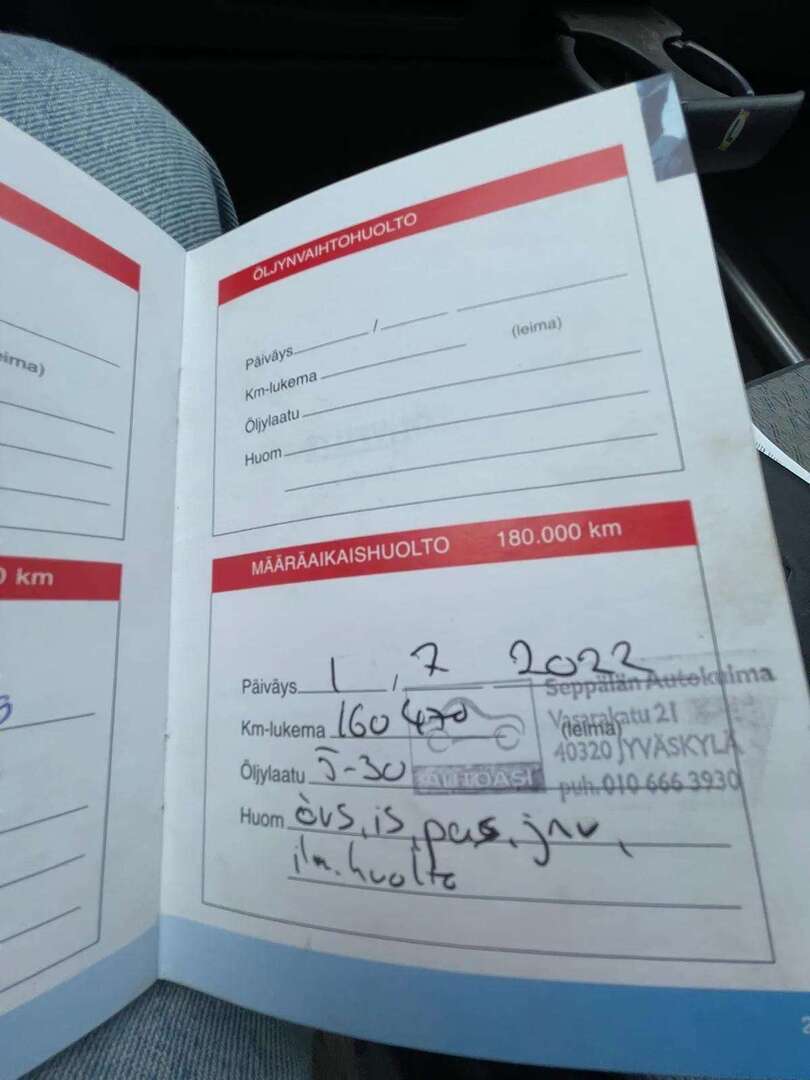 eima)
0 km
ÖLJYNVAIHTOHUOLTO
Päiväys / (leima)
Km-lukema
Öljylaatu
Huom
MÄÄRÄAIKAISHUOLTO 180.000 km
Päiväys 1 / 7 2022
Seppälän Autokulma
Km-lukema 160 470
Vasarakatu 21
(leima)
40320 JYVÄSKYLÄ
Öljylaatu 5-30
AUTOASI
puh. 010 666 3930
Huom övs, is, pas, jnv,
ilm. huolto
2